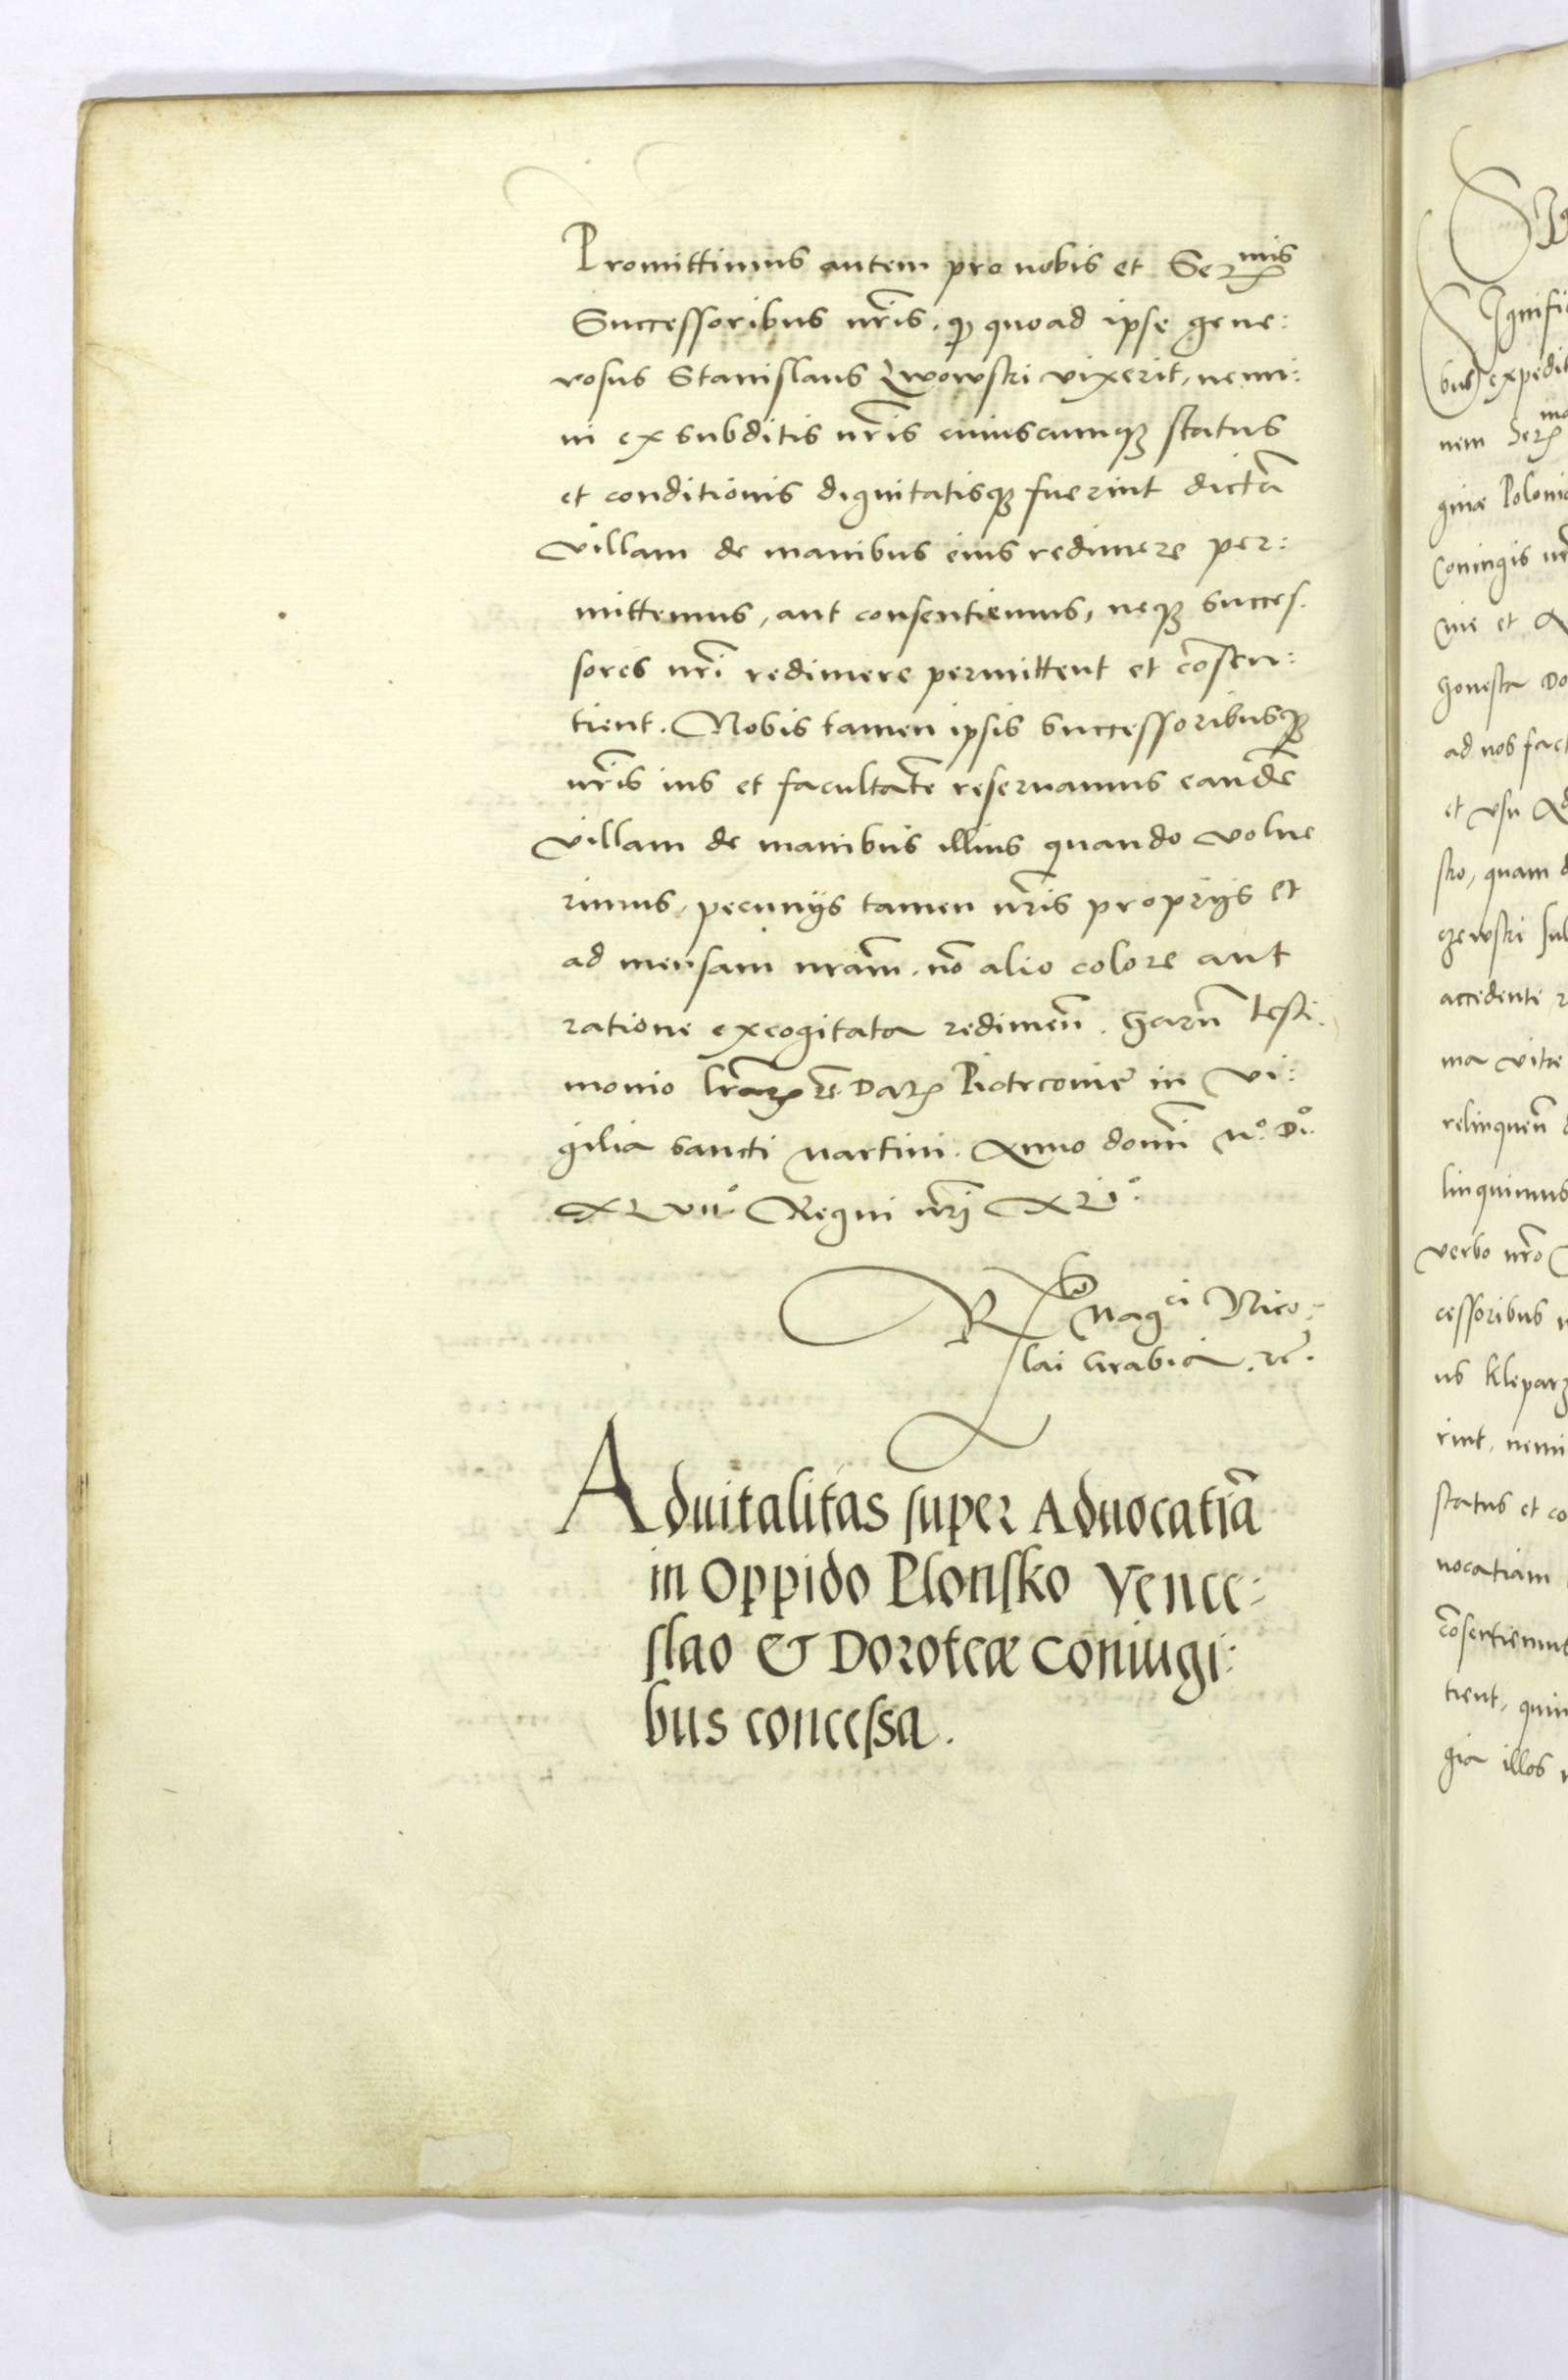 Promittimus autem pro nobis et Ser mis
Successoribus nris. qp quoad ipse gene:
rosus Stanislaus Lwowski vixerit, nemi:
ni ex subditis nris cuiuscumqz status
et conditionis dignitatisqz fuerint dictã
villam de manibus eius redimere per:
mittemus, aut consentiemus, neqz succes.
sores nri redimere permittent et cõsen:
tient. Nobis tamen ipsis successoribusqz
nris ius et facultatẽ reseruamus eandẽ
villam de manibus illius quando volue
rimus, pecunijs tamen nris proprijs et
ad mensam nram. nõ alio colore aut
ratione excogitata redimen. Harũ testi.
monio lrarz rc. Datz Piotrcovie in Vi:
gilia sancti Martini. Anno domi Mº. Dº.
XLVIIº Regni nri XLIº.
Rlo Mag ci Nico:
lai Grabia. rc.
Aduitalitas super Aduocatiã
in Oppido Plonsko Vence:
slao & Doroteæ Coniugi:
bus concessa.
bus expedit
nem Ser
ginæ Poloni
Coniugis
et
honesta Do
ad nos fact
et vsu
sto, quam
accedente
ma vitæ
relinquen
linquimus
verbo nro
cessoribus
us Klepar
rint, nemi
status et co
uocatiam
cõsentiemus
tient, quin
gia illos